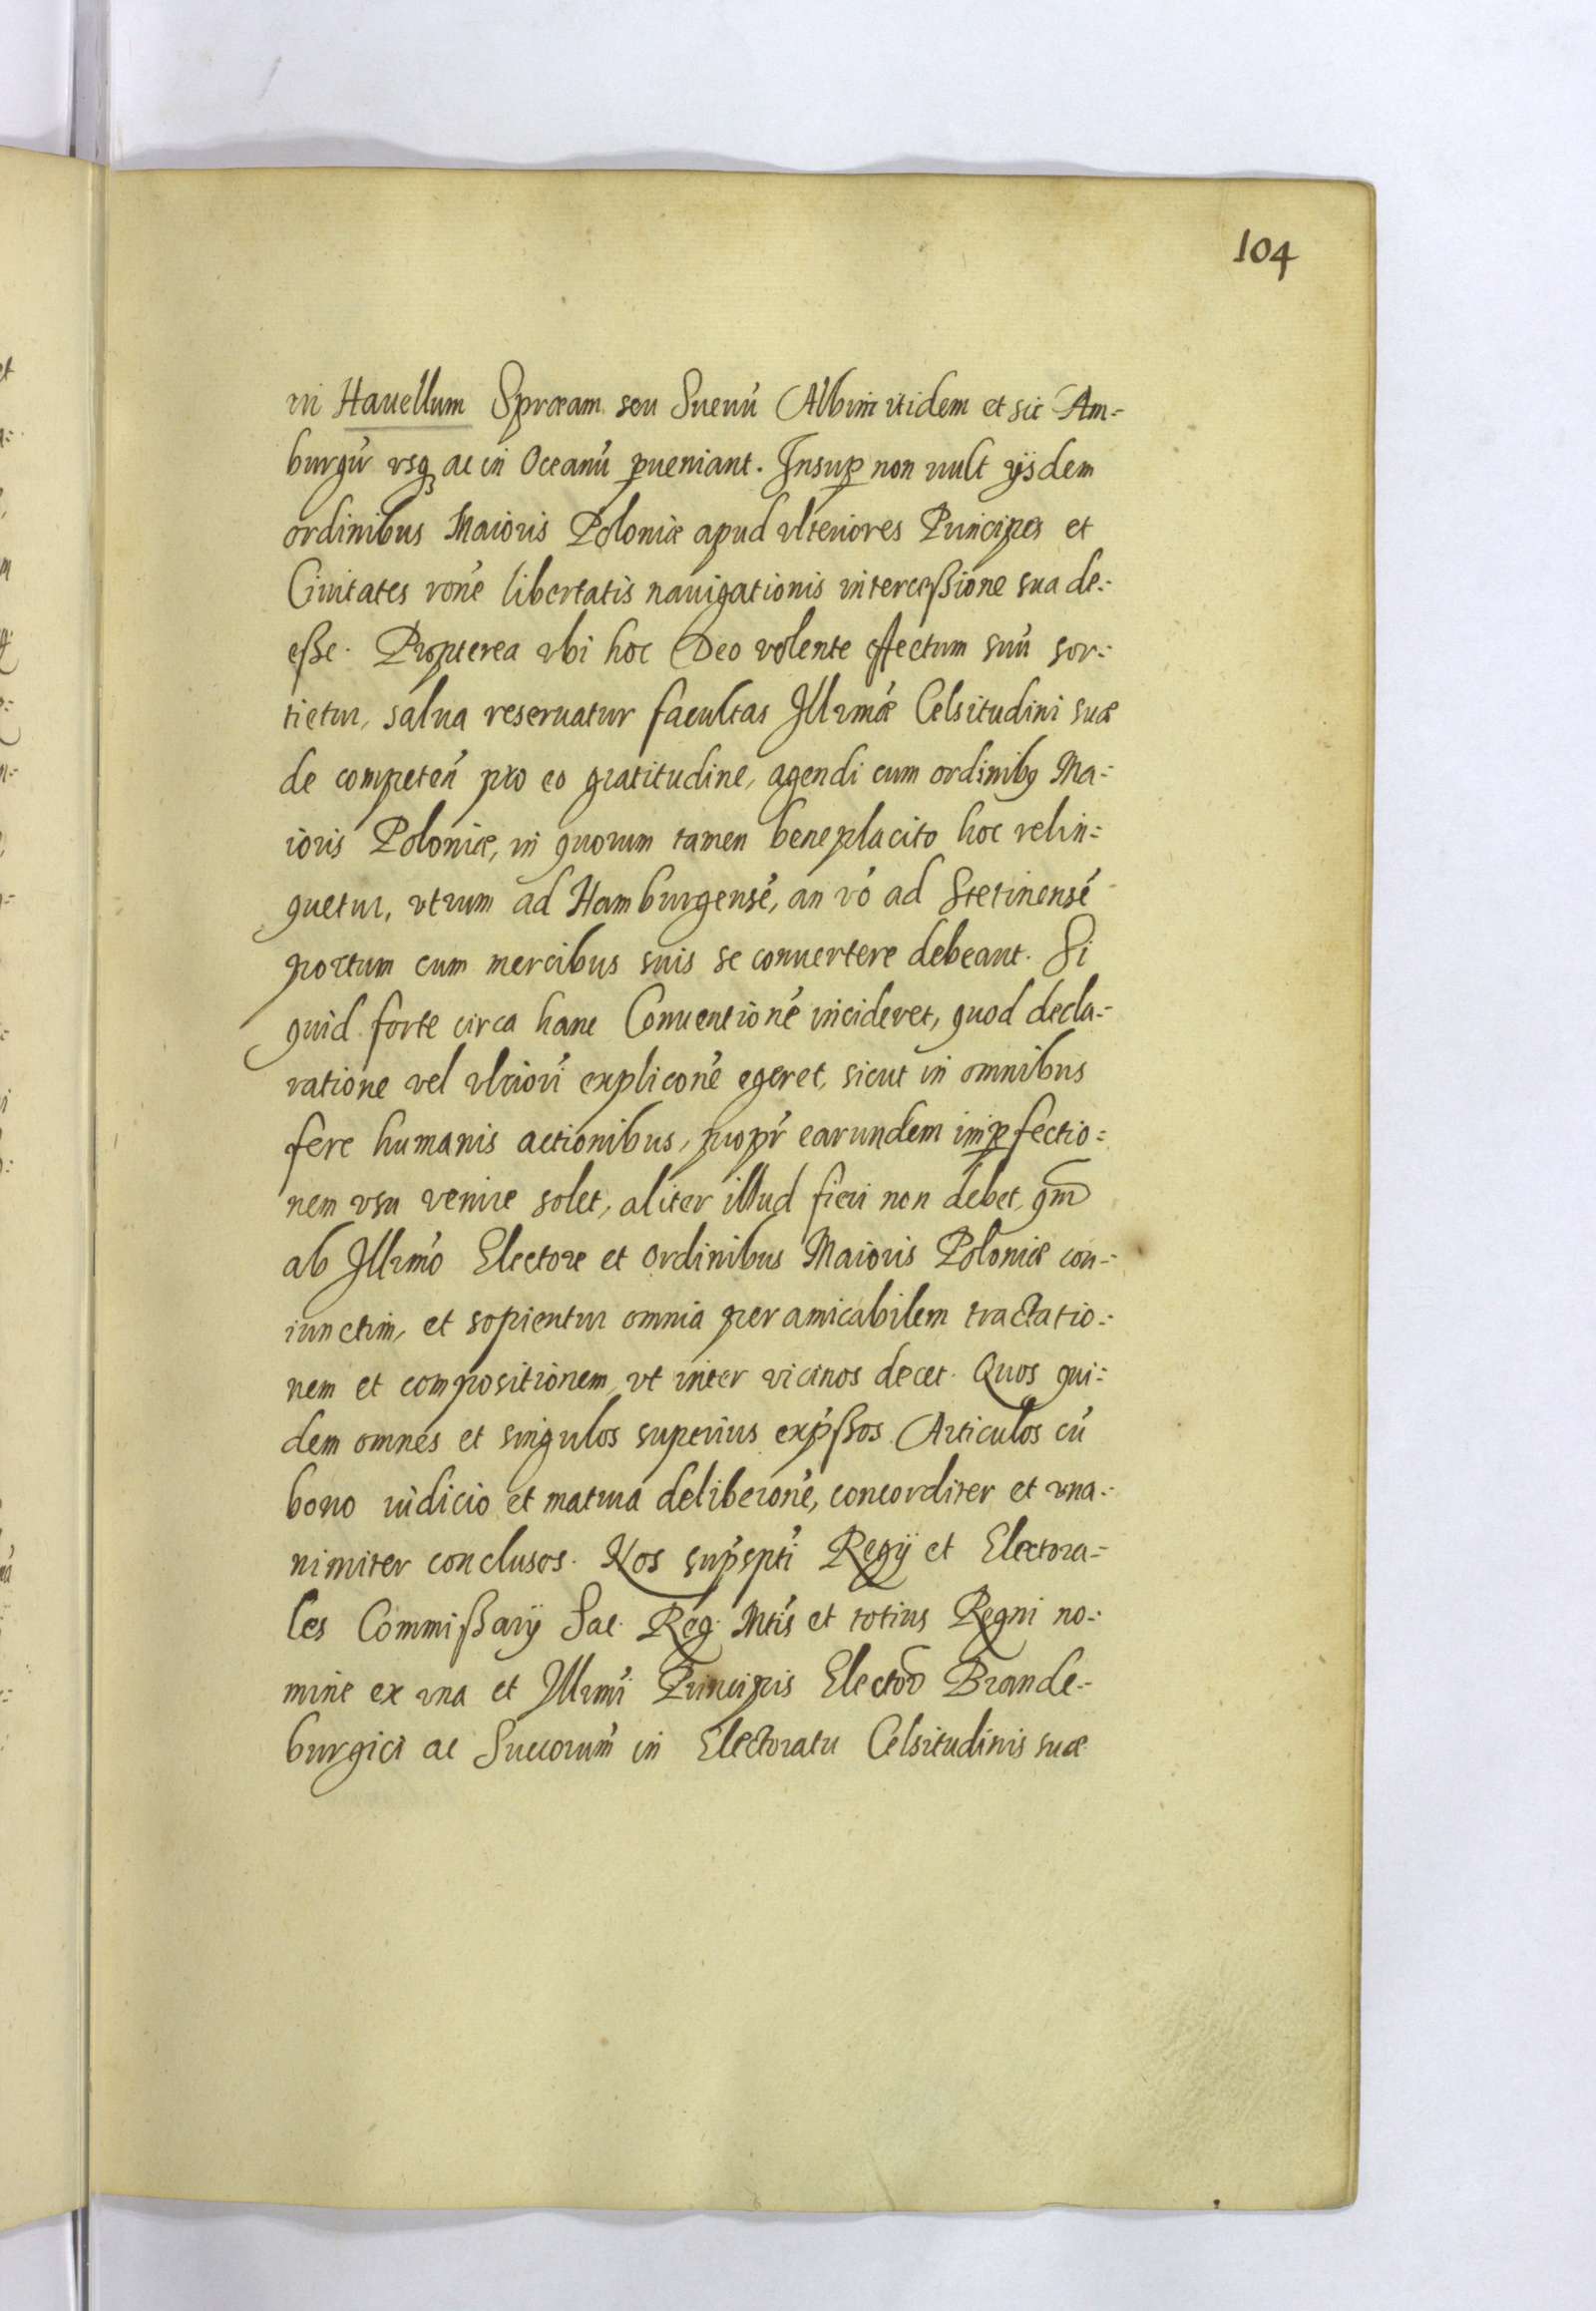 104
in Hauellum Spræam seu Sueuũ Albim itidem et sic Am=
burgũ vsq́ ac in Oceanũ ꝑueniant. Insuꝑ non uult ijsdem
ordinibus Maioris Poloniæ apud vlteriores Principes et
Ciuitates roñe libertatis nauigationis interceßione sua de=
eße. Propterea vbi hoc Deo volente effectum suũ sor=
tietur, salua reseruatur facultas Illrmæ Celsitudini suæ
de competeñ pro eo gratitudine, agendi cum ordinibꝰ Ma=
ioris Poloniæ, in quorum tamen beneplacito hoc relin=
quetur, vtrum ad Hamburgensẽ, an rõ ad Stetinensẽ
portum cum mercibus suis se conuertere debeant. Si
quid forte circa hanc Conuentionẽ incideret, quod decla=
ratione vel vlriori explicoñe egeret, sicut in omnibus
fere humanis actionibus, propr̃ earundem imꝑfectio=
nem vsu venire solet, aliter illud fieri non debet, qm̃
ab Illrmo Electore et ordinibus Maioris Poloniæ con=
iunctim, et sopientur omnia per amicabilem tractatio=
nem et compositionem, vt inter vicinos decet. Quos qui=
dem omnes et singulos superius exp̃ßos Articulos cũ
bono iudicio et matura deliberoñe, concorditer et vna=
nimiter conclusos. Nos sup̃spti Regij et Electora=
les Commißarij Sac. Reg. Mtis et totius Regni no=
mine ex vna et Illrmi Principis Elector̃ Brande=
burgici ac Succorum̃ in Electoratu Celsitudinis suæ